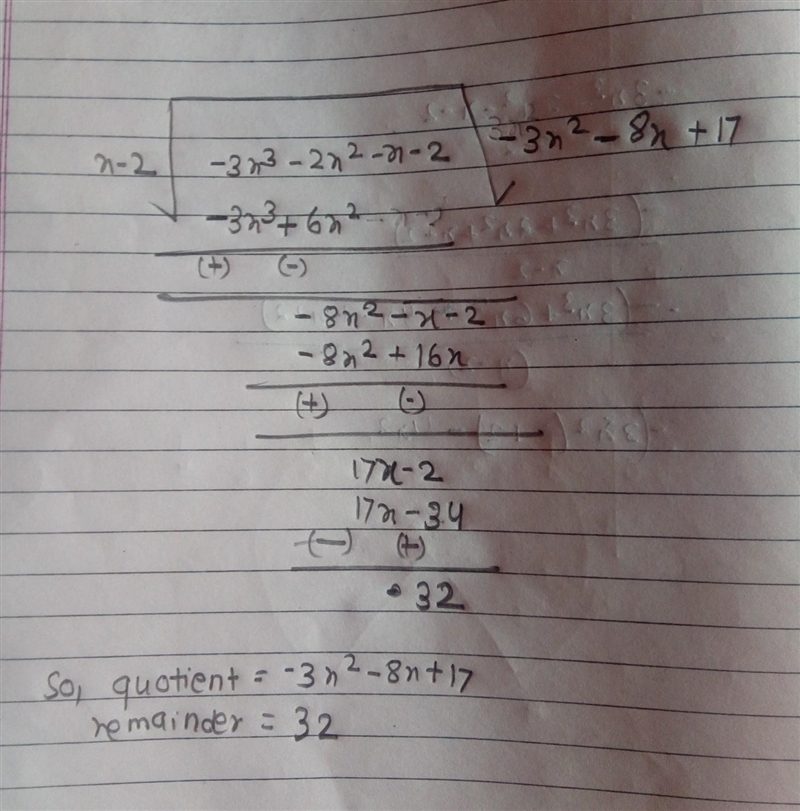 x-2 -3x³ - 2x² - x - 2 -3x² - 8x + 17
-3x³ + 6x²
(+) (-)
- 8x² - x - 2
- 8x² + 16x
(+) (-)
17x - 2
17x - 34
(-) (+)
32
So, quotient = -3x² - 8x + 17
remainder = 32